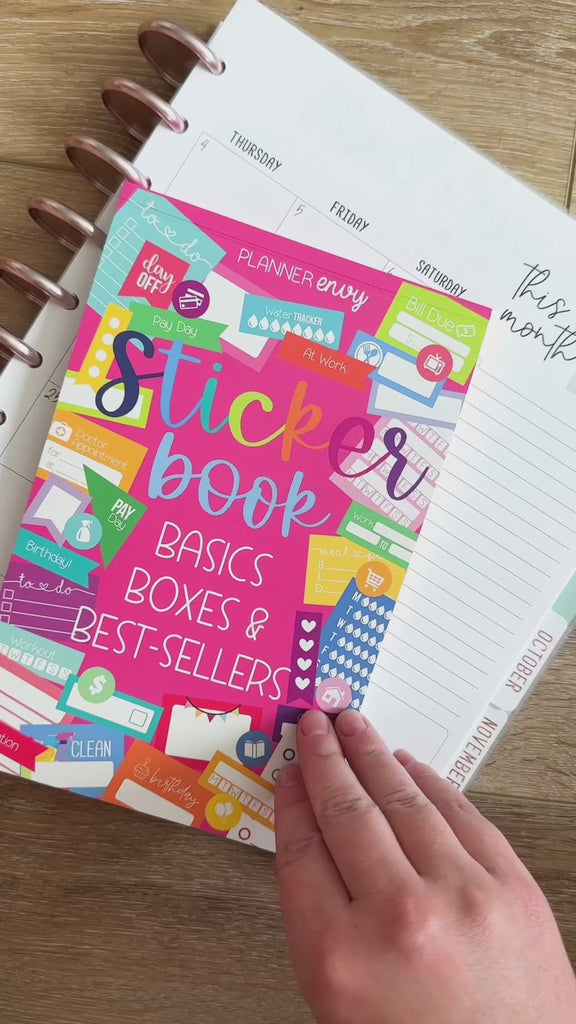 4
THURSDAY
5
FRIDAY
SATURDAY
this
month
OCTOBER
NOVEMBER
PLANNER envy
to do
day
OFF
Pay Day
Water TRACKER
At Work
Bill Due
$
Sticker
book
BASICS
BOXES &
BEST-SELLERS
Doctor
Appointment
for
at
PAY
Day
Birthday!
to do
Workout
M T W T F S S
Work
TO
meal
B
L
D
M
T
W
T
F
$
CLEAN
birthday
M T W T F S S